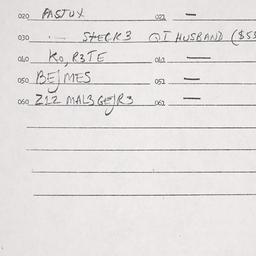 020 PASTUX 021 —
030 STECK3 QT HUSBAND ($53
040 KO, R3TE 041 —
050 BEJMES 051 —
060 Z12 MAL3 GEJR3 061 —